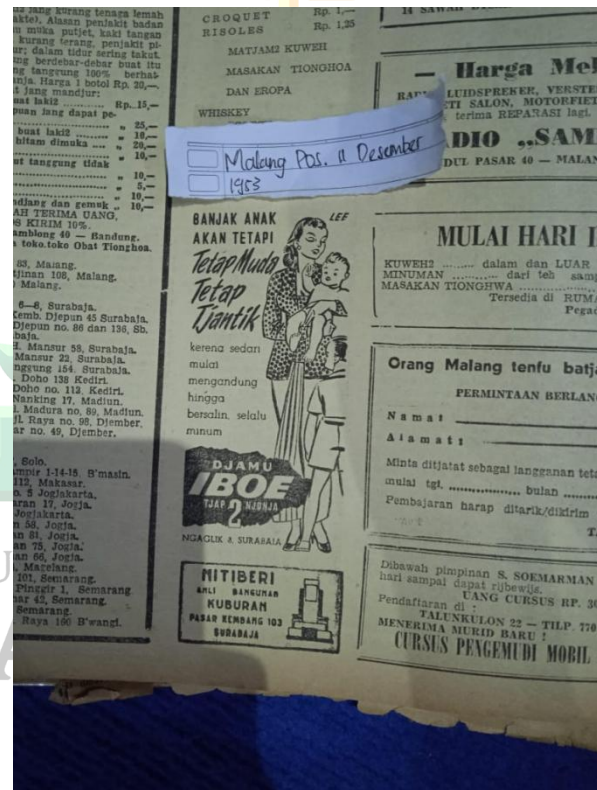 2 jang kurang tenaga lemah
akte), Alasan penjakit badan
n muka putjet, kaki tangan
kurang terang, penjakit pi-
ur; dalam tidur sering takut.
ng berdebar-debar buat itu
ng tanggung 100% berhas-
anja. Harga 1 botol Rp. 20,—.
t jang mandjur:
uat laki2 ........... Rp. 15,—
puan jang dapat pe-
„ 25,—
buat laki2 „ 10,—
hitam dimuka .. „ 20,—
„ 10,—
ut tanggung tidak
„ 10,—
„ 5,—
„ 10,—
ndjang dan gemuk .. 10,—
AH TERIMA UANG,
S KIRIM 10%.
amblong 40 — Bandung.
toko.toko Obat Tionghoa.
53, Malang.
tjinan 108, Malang.
Malang.
6—8, Surabaja.
Kemb. Djepun 45 Surabaja.
Djepun no. 86 dan 136, Sb.
baja.
H. Mansur 58, Surabaja.
Mansur 22, Surabaja.
nggung 154. Surabaja.
Doho 138 Kediri.
Doho no. 112, Kediri.
Nanking 17, Madiun.
l. Madura no. 89, Madiun.
jl. Raya no. 98, Djember.
ar no. 49, Djember.
, Solo.
ampir 1-14-15. B'masin.
112, Makasar.
o. 5 Jogjakarta.
aran 17, Jogja.
Jogjakarta.
n 58, Jogja.
an 81, Jogja.
an 75, Jogja.
an 66, Jogja.
, Magelang.
101, Semarang.
Pinggir 1, Semarang
sar 42, Semarang.
Semarang.
Raya 166 B'wangi.
CROQUET Rp. 1,—
RISOLES Rp. 1,25
MATJAM2 KUWEH
MASAKAN TIONGHOA
DAN EROPA
WHISKEY
Malang Pos. 11 Desember
1953
BANJAK ANAK
AKAN TETAPI
Tetap Muda
Tetap
Tjantik
LEE
kerena sedari
mulai
mengandung
hingga
bersalin, selalu
minum
DJAMU
IBOE
TJAP 2 NJONJA
NGAGLIK 8, SURABAJA
MITIBERI
AHLI BANGUNAN
KUBURAN
PASAR KEMBANG 103
SURABAJA
14 SAWAH
— Harga Mel
LUIDSPREKER, VERSTE
ETI SALON, MOTORFIET
terima REPARASI lagi.
ADIO „SAM
DUL PASAR 40 — MALAN
MULAI HARI I
KUWEH2 ........ dalam dan LUAR
MINUMAN .......... dari teh samp
MASAKAN TIONGHWA
Tersedia di RUMA
Pegac
Orang Malang tenfu batja
PERMINTAAN BERLANG
Nama:
Alamat:
Minta ditjatat sebagai langganan teta
mulai tgl. ................. bulan
Pembajaran harap ditarik/dikirim
Dibawah pimpinan S. SOEMARMAN
hari sampai dapat rijbewijs.
UANG CURSUS RP. 30
Pendaftaran di :
TALUNKULON 22 — TILP. 770
MENERIMA MURID BARU !
CURSUS PENGEMUDI MOBIL